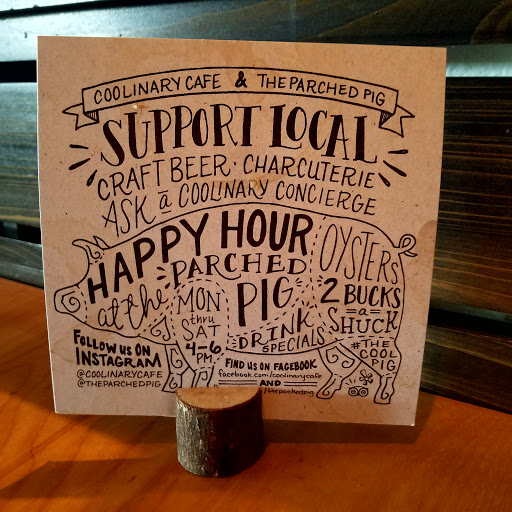 COOLINARY CAFE & THE PARCHED PIG
SUPPORT LOCAL
CRAFT BEER · CHARCUTERIE
ASK a COOLINARY CONCIERGE
HAPPY HOUR
at the
PARCHED
PIG
MON
thru
SAT
4-6
PM
DRINK
SPECIALS
OYSTERS
2 BUCKS
a
SHUCK
#THE
COOL
PIG
FOLLOW US ON
INSTAGRAM
@COOLINARYCAFE
@THEPARCHEDPIG
FIND US ON FACEBOOK
facebook.com/coolinarycafe
AND
/theparchedpig